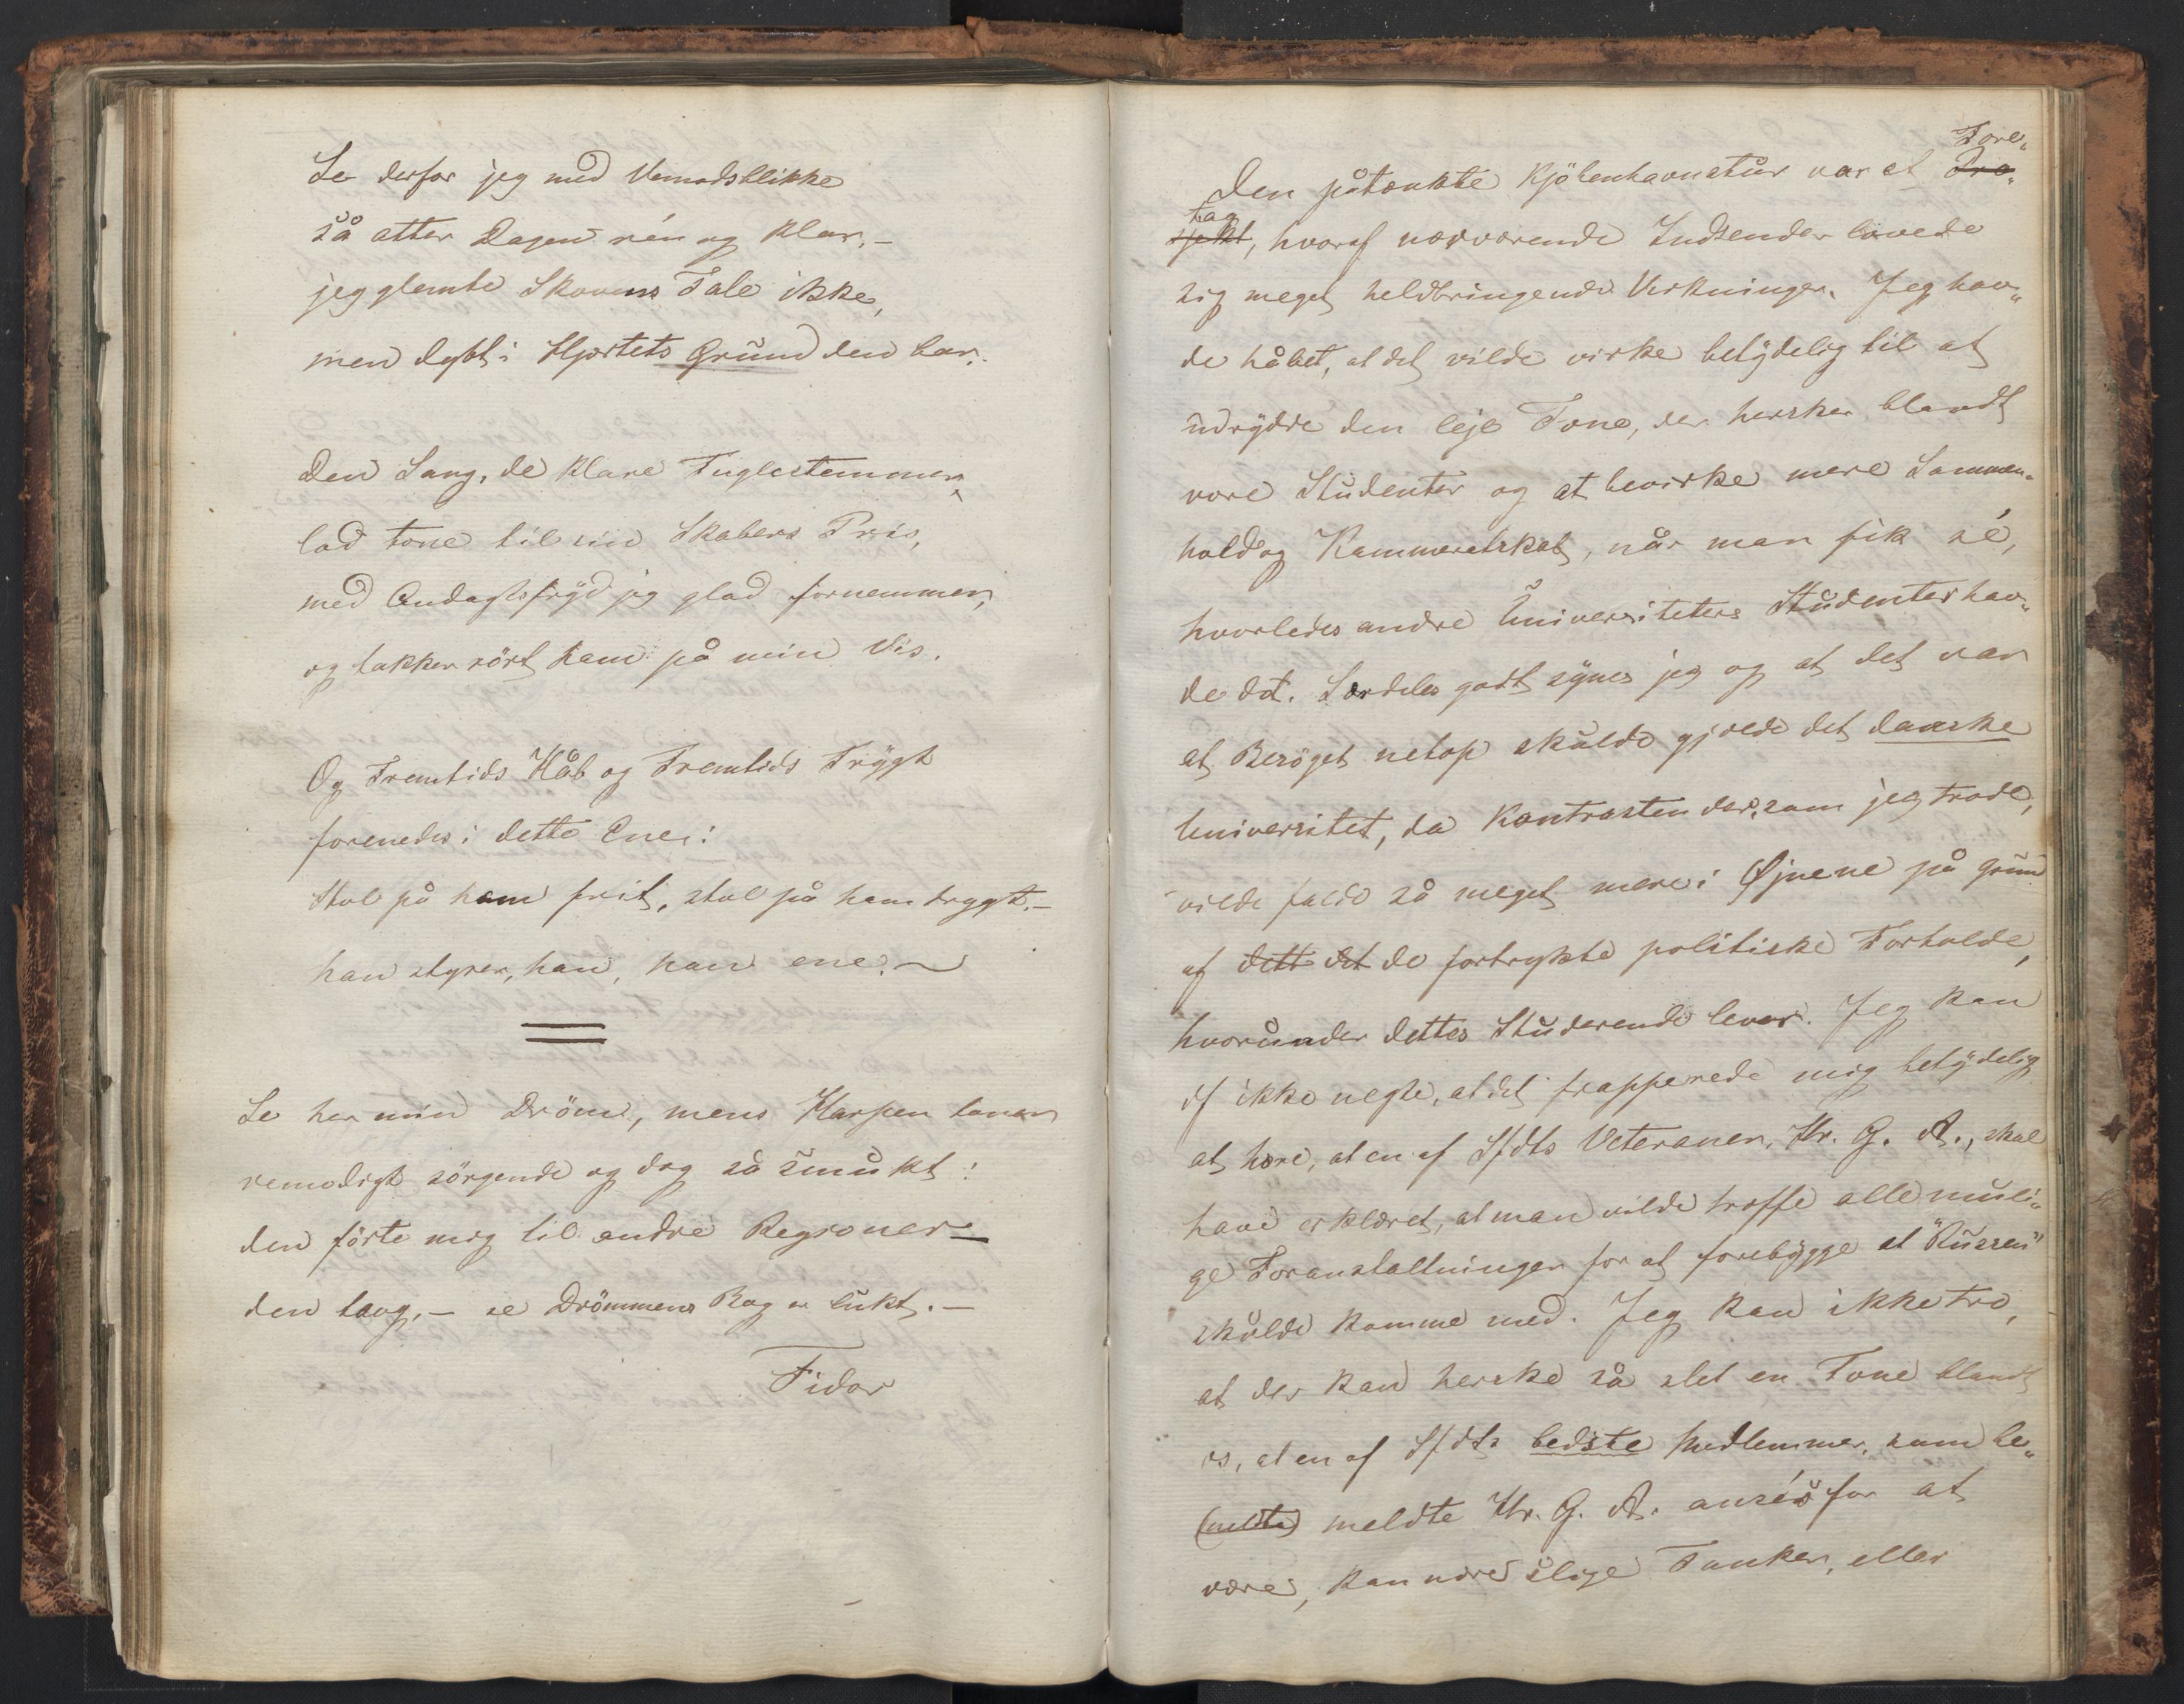 Se derfor jeg med Vemodsblikke
så atter Dagen rén og klar, –
jeg glemte Skovens Tale ikke,
men dybt i Hjertets Grund den bar.
Den Sang, de klare Fuglestemmer
lod tone til sin Skabers Pris,
med Andagtsfryd jeg glad fornemmer,
og takker rört ham på min Vis.
Og Fremtids Håb og Fremtids Frygt
forenedes i dette Ene:
Stol på ham frit, stol på ham trygt, –
han styrer, han, han ene. –
Se her min Dröm, mens Harpen toner
vemodigt sörgende og dog så smukt:
den förte mig til andre Regioner –
den taug, – se Drömmens Bog er lukt. –
Fidor
Fore„
Den påtænkte Kjöbenhavnstur var et Pro„
tag
sjekt, hvoraf nærværende Indsender lovede
sig meget heldbringende Virkninger. Jeg hav„
de håbet, at det vilde virke betydelig til at
udrydde den leje Tone, der hersker blandt
vore Studenter og at bevirke mere Sammen„
hold og Kammeratskab, når man fik sé,
hvorledes andre Universiteters Studenter hav„
de det. Særdeles godt synes jeg og at det var
at Besöget netop skulde gjælde det danske
Universitet, da Kontrasten der, som jeg trode,
vilde falde så meget mere i Øjnene på Grund
af dett det de fortrykte politiske Forholde,
hvorunder dettes Studerende lever. Jeg kan
df ikke negte, at det frapperede mig betydelig
at høre, at en af Sfdts Veteraner, Hr. G. A., skal
have erklæret, at man vilde træffe alle muli„
ge Foranstaltninger for at forebygge at "Russen"
skulde komme med. Jeg kan ikke tro,
at der kan herske så slet en Tone blandt
os, at en af Sfdts bedste Medlemmer, som be„
(meldte) meldte Hr. G. A. anses for at
være, kan nære slige Tanker, eller